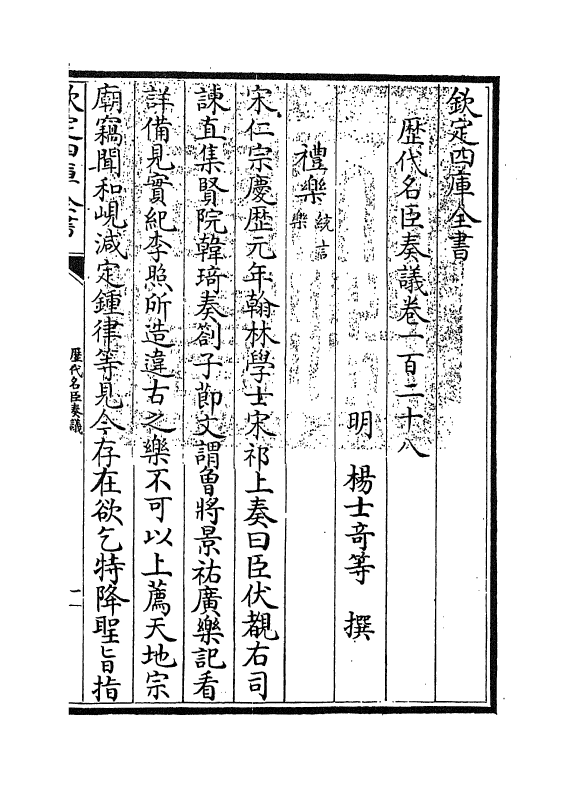 欽定四庫全書
歴代名臣奏議卷一百二十八
明　楊士竒等　撰
禮樂統言樂
宋仁宗慶歴元年翰林學士宋祁上奏曰臣伏覩右司
諫直集賢院韓琦奏劄子節文謂曾將景祐廣樂記看
詳備見實紀李照所造違古之樂不可以上薦天地宗
廟竊聞和峴減定鍾律等見今存在欲乞特降聖旨指
欽定四庫全書
歴代名臣奏議
一